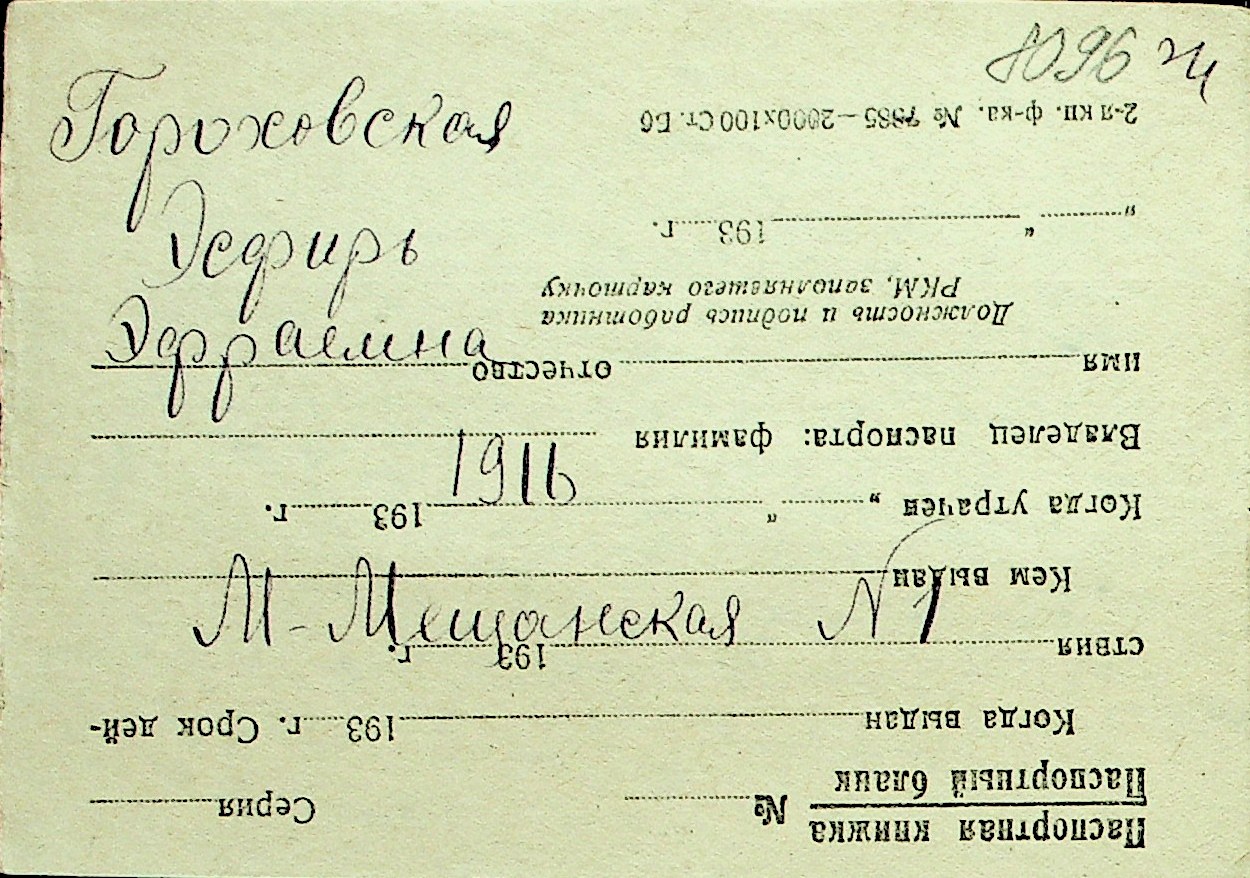 Гороховская
Эсфирь
Эфраемна
1916
М-Мещанская №1
Паспортная книжка
Паспортный бланк
№ Серия
Когда выдан 193 г. Срок дей-
ствия 193 г.
Кем выдан
Когда утрачен „ “ 193 г.
Владелец паспорта: фамилия
имя отчество
Должность и подпись работника
РКМ, заполнявшего карточку
„ “ 193 г.
2-я кн. ф-ка. № 7885—2000х100 Ст. Бб